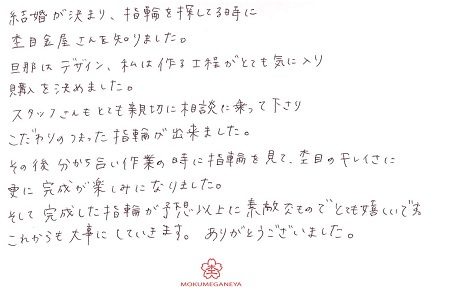 結婚が決まり、指輪を探してる時に
杢目金屋さんを知りました。
旦那はデザイン、私は作る工程がとても気に入り
購入を決めました。
スタッフさんもとても親切に相談に乗って下さり
こだわりのつまった指輪が出来ました。
その後 分かち合い作業の時に指輪を見て、杢目のキレイさに
更に完成が楽しみになりました。
そして完成した指輪が予想以上に素敵なものでとても嬉しいです。
これからも大事にしていきます。ありがとうございました。
杢
MOKUMEGANEYA